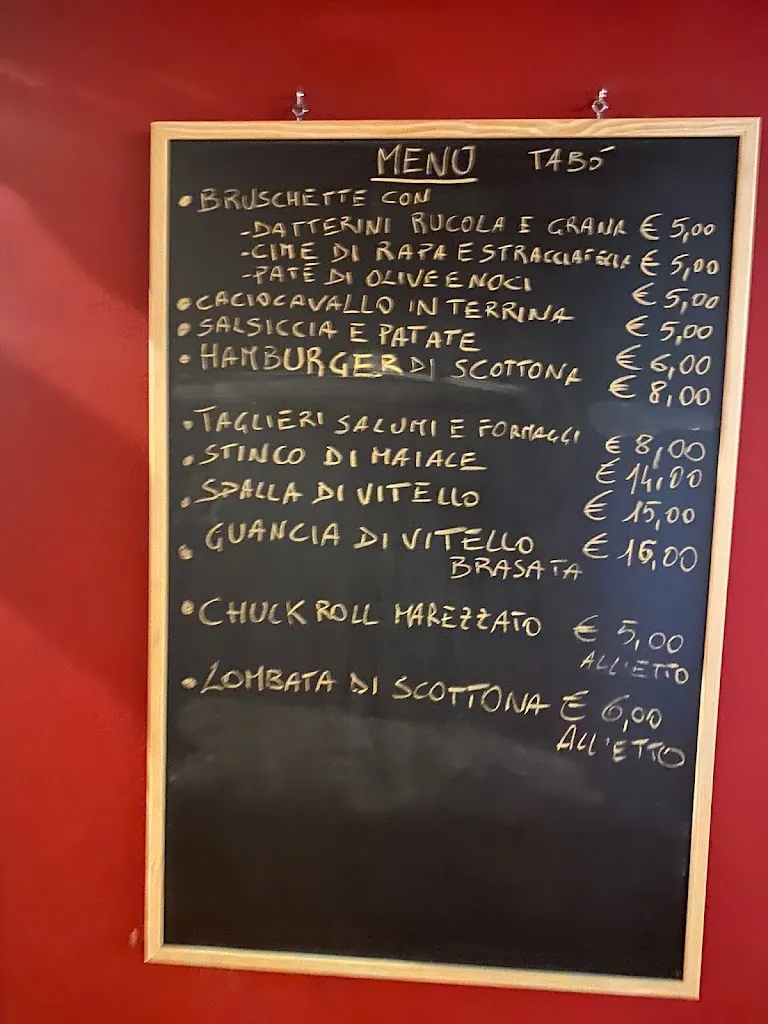 MENÙ TABÙ
• BRUSCHETTE CON
-DATTERINI RUCOLA E GRANA € 5,00
-CIME DI RAPA E STRACCIATELLA € 5,00
-PATÈ DI OLIVE E NOCI € 5,00
• CACIOCAVALLO IN TERRINA € 5,00
• SALSICCIA E PATATE € 6,00
• HAMBURGER DI SCOTTONA € 8,00
• TAGLIERI SALUMI E FORMAGGI € 8,00
• STINCO DI MAIALE € 14,00
• SPALLA DI VITELLO € 15,00
• GUANCIA DI VITELLO € 16,00
BRASATA
• CHUCK ROLL MAREZZATO € 5,00
ALL'ETTO
• LOMBATA DI SCOTTONA € 6,00
ALL'ETTO